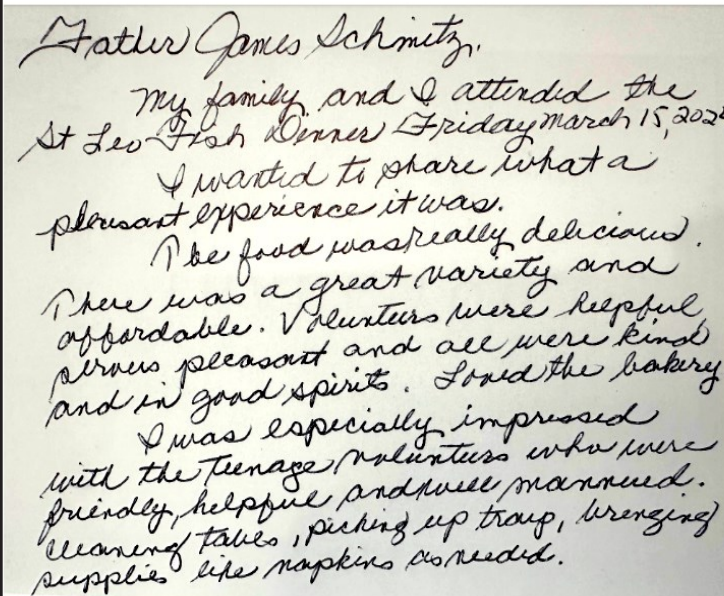 Father James Schmitz,
My family and I attended the
St Leo Fish Dinner Friday March 15, 202
I wanted to share what a
pleasant experience it was.
The food was really delicious.
There was a great variety and
affordable. Volunteers were helpful,
pleasant and all were kind
and in good spirits. Loved the bakery
I was especially impressed
with the teenage volunteers who were
friendly, helpful and well mannered.
cleaning tables, picking up trays, bringing
supplies like napkins as needed.